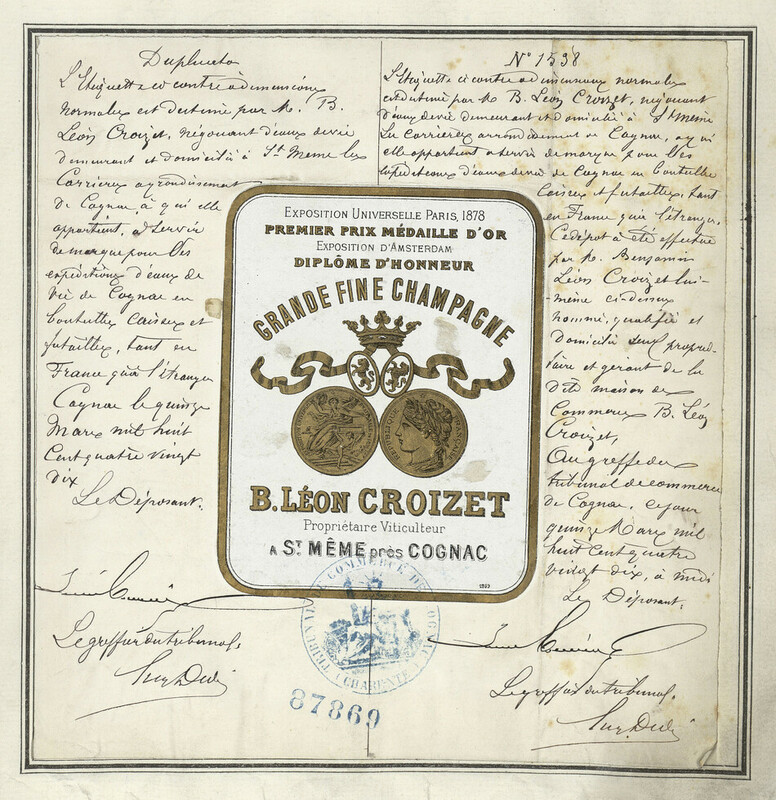 Duplicata
L'Etiquette ci contre à dimensions
normales est destinée par M. B.
Léon Croizet, négociant d'eaux de vie
demeurant et domicilié à St Meme les
Carrières arrondissement
de Cognac, à qui elle
appartient, à servir
de marque pour les
expéditions d'eaux de
vie de Cognac en
bouteilles caisses et
futailles, tant en
France qu'à l'étranger
Cognac le quinze
Mars mil huit
Cent quatre vingt
dix
Le Déposant.
Le greffier du tribunal.
N° 1598
L'Etiquette ci contre à dimensions normales
est destinée par M B. Léon Croizet, négociant
d'eaux de vie demeurant et domicilié à St Meme
les Carrières arrondissement de Cognac, à qui
elle appartient à servir de marque pour les
expéditions d'eaux de vie de Cognac en bouteilles
caisses et futailles, tant
en France qu'à l'étranger.
Ce dépôt a été effectué
par M. Benjamin
Léon Croizet lui-
même ci-dessus
nommé, qualifié et
domicilié seul proprié-
taire et gérant de la
dite maison de
Commerce B. Léon
Croizet,
Au greffe du
tribunal de commerce
de Cognac, ce jour
quinze Mars mil
huit cent quatre
vingt dix, à midi
Le Déposant.
Le greffier du tribunal.
EXPOSITION UNIVERSELLE PARIS, 1878
PREMIER PRIX MÉDAILLE D'OR
EXPOSITION D'AMSTERDAM
DIPLÔME D'HONNEUR
GRANDE FINE CHAMPAGNE
RÉPUBLIQUE FRANÇAISE
B. LÉON CROIZET
Propriétaire Viticulteur
A ST MÊME près COGNAC
TRIBUNAL DE COMMERCE DE COGNAC
(CHARENTE)
87869